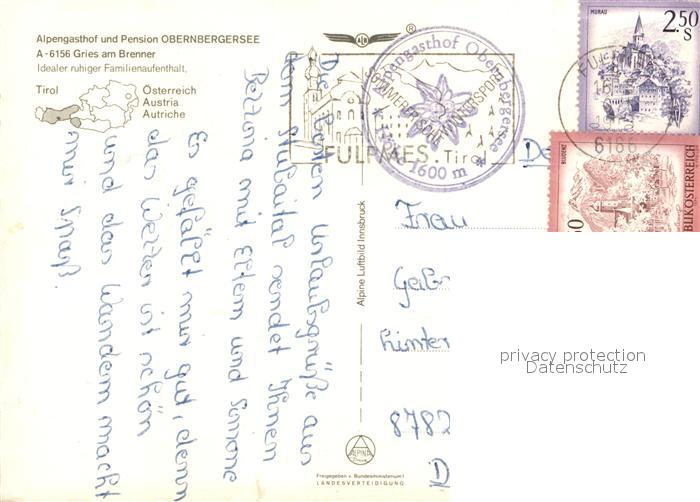 Alpengasthof und Pension OBERNBERGERSEE
A-6156 Gries am Brenner
Idealer ruhiger Familienaufenthalt,
Tirol
Österreich
Austria
Autriche
Die besten Urlaubsgrüße aus
dem Stubaital sendet Ihnen
Bettina mit Eltern und Simone
Es gefällt mir gut, denn
das Wetter ist schön
und das Wandern macht
mir Spaß.
®
Alpengasthof Obernbergersee
1600 m
SOMMER
WINTERSPORT
FULPMES. Tirol
MURAU
2.50
S
6166
BLUDENZ
REPUBLIK ÖSTERREICH
Frau
Gab
hinter
8782
D
privacy protection
Datenschutz
Alpine Luftbild Innsbruck
ALPINE
Freigegeben v. Bundesministerium f.
LANDESVERTEIDIGUNG